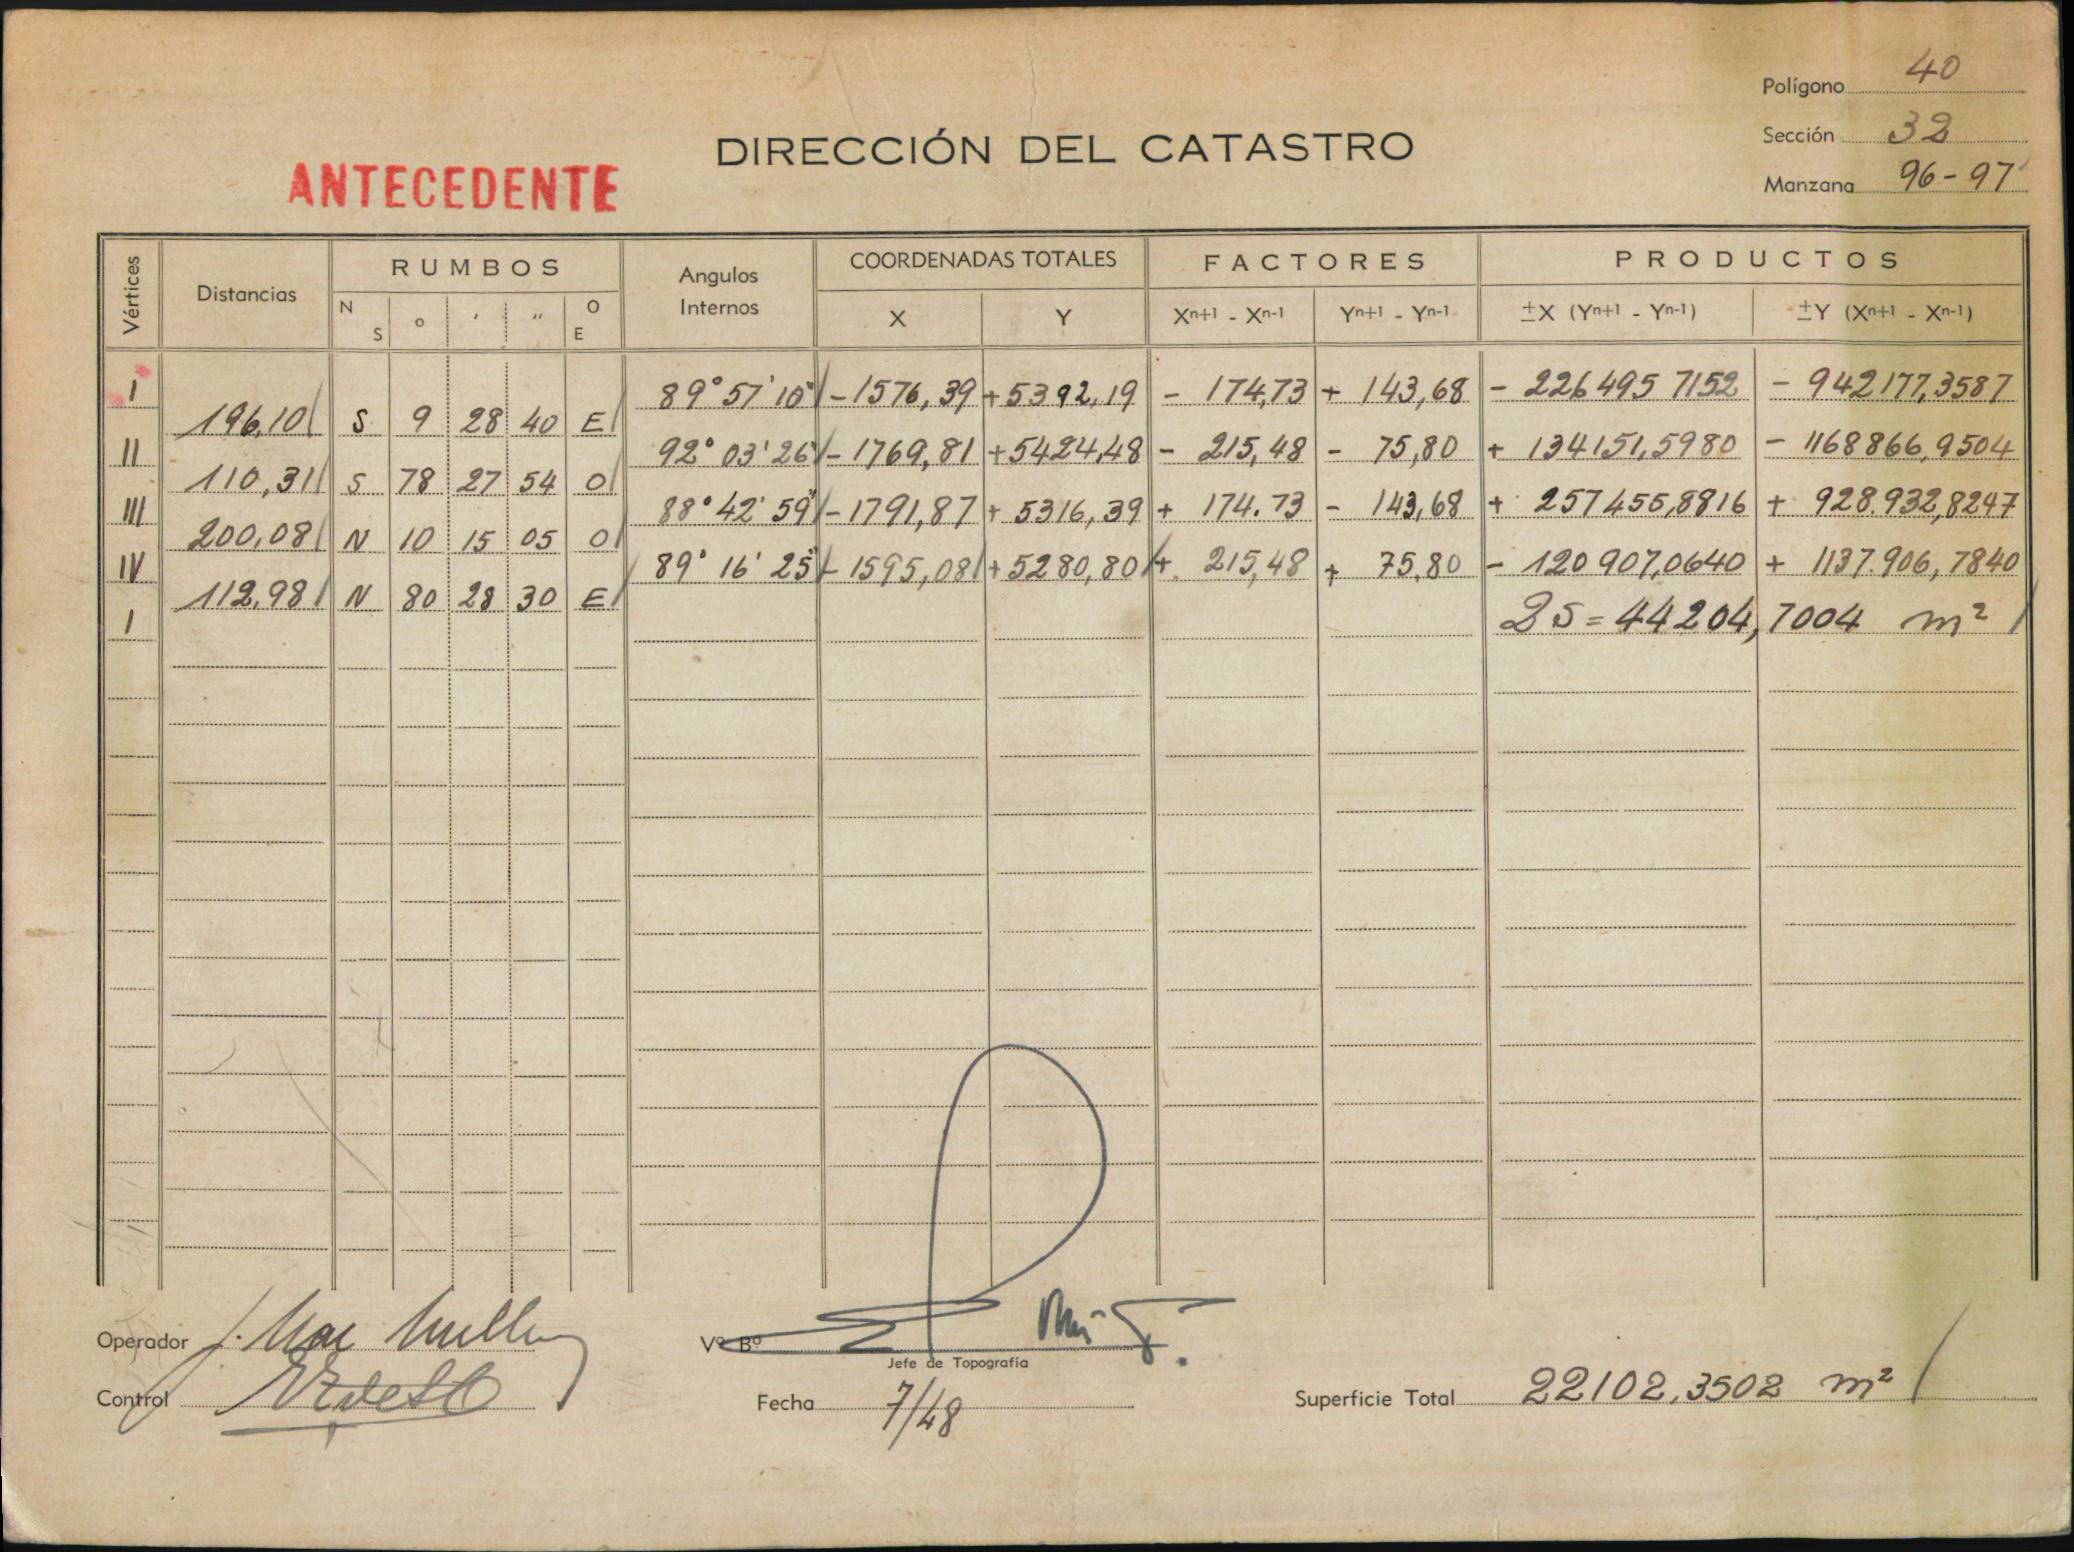 Polígono 40
Sección 32
Manzana 96-97
DIRECCIÓN DEL CATASTRO
ANTECEDENTE
Vértices Distancias RUMBOS Angulos Internos COORDENADAS TOTALES FACTORES PRODUCTOS
N S ° ' " O E X Y Xn+1 - Xn-1 Yn+1 - Yn-1 ±X (Yn+1 - Yn-1) ±Y (Xn+1 - Xn-1)
I 89° 57' 10" -1576,39 +5392,19 - 174,73 + 143,68 - 226495 7152 - 942177,3587
196,10 S 9 28 40 E
II 92° 03' 26" - 1769,81 +5424,48 - 215,48 - 75,80 + 134151,5980 - 1168866,9504
110,31 S 78 27 54 O
III 88° 42' 59" -1791,87 + 5316,39 + 174.73 - 143,68 + 257455,8816 + 928.932,8247
200,08 N 10 15 05 O
IV 89° 16' 25" - 1595,08 +5280,80 + 215,48 + 75,80 - 120907,0640 + 1137.906,7840
112,98 N 80 28 30 E
I 2S = 44204,7004 m²
Operador
Vº Bº
Jefe de Topografía
Control
Fecha 7/48
Superficie Total 22102,3502 m²